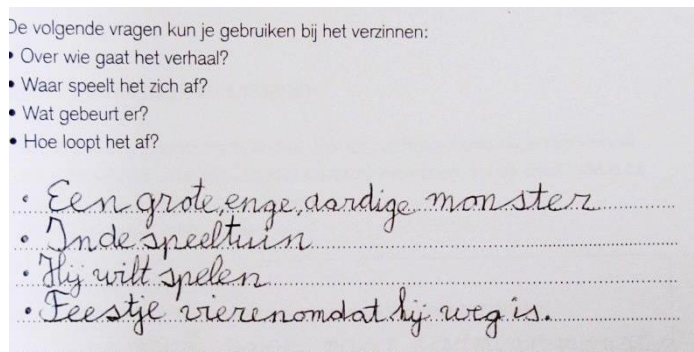 De volgende vragen kun je gebruiken bij het verzinnen:
• Over wie gaat het verhaal?
• Waar speelt het zich af?
• Wat gebeurt er?
• Hoe loopt het af?
• Een grote, enge, aardige monster
• In de speeltuin
• Hij wilt spelen
• Feestje vieren omdat hij weg is.